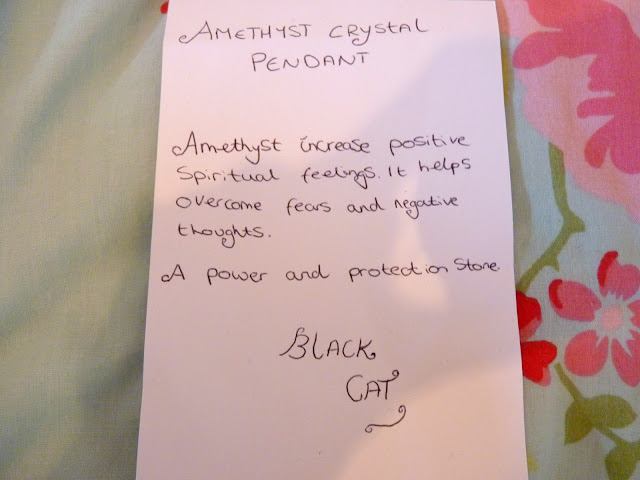 AMETHYST CRYSTAL
PENDANT
Amethyst increase positive
Spiritual feelings. It helps
overcome fears and negative
thoughts.
A power and protection Stone.
BLACK
CAT